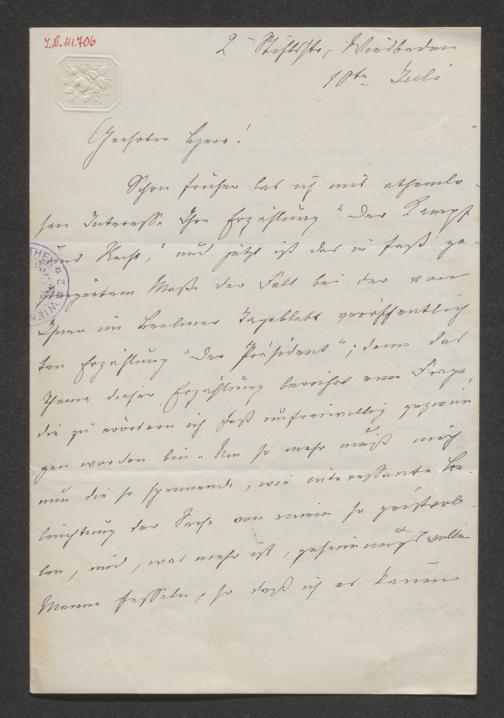 J.N. III.706
2 Stiftstr, Wiesbaden
10te Juli
Geehrter Herr!
Schon früher las ich mit athemlo-
sem Interesse Ihre Erzählung "Der Kampf
ums Recht," und jetzt ist das in fast ge-
steigertem Maße der Fall bei der von
Ihnen im Berliner Tageblatt veröffentlich
ten Erzählung "Der Präsident"; denn das
Thema dieser Erzählung berührt eine Frage
die zu erörtern ich fast unfreiwillig gezwun
gen worden bin. Um so mehr muß mich
nun die so spannende, wie interessante Be-
leuchtung der Sache von einem so geistvol-
len, und, was mehr ist, gesinnungsvollen
Manne fesseln, so daß ich es kaum